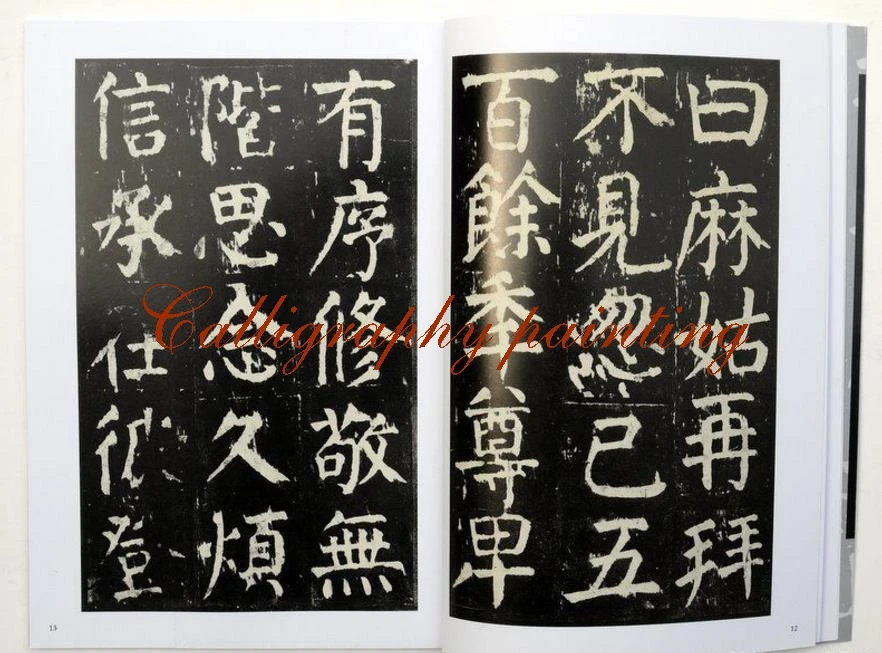 曰麻姑再拜
不見忽已五
百餘秊尊卑
有序修敬無
階思念久煩
信承在彼登
Calligraphy painting
12
13